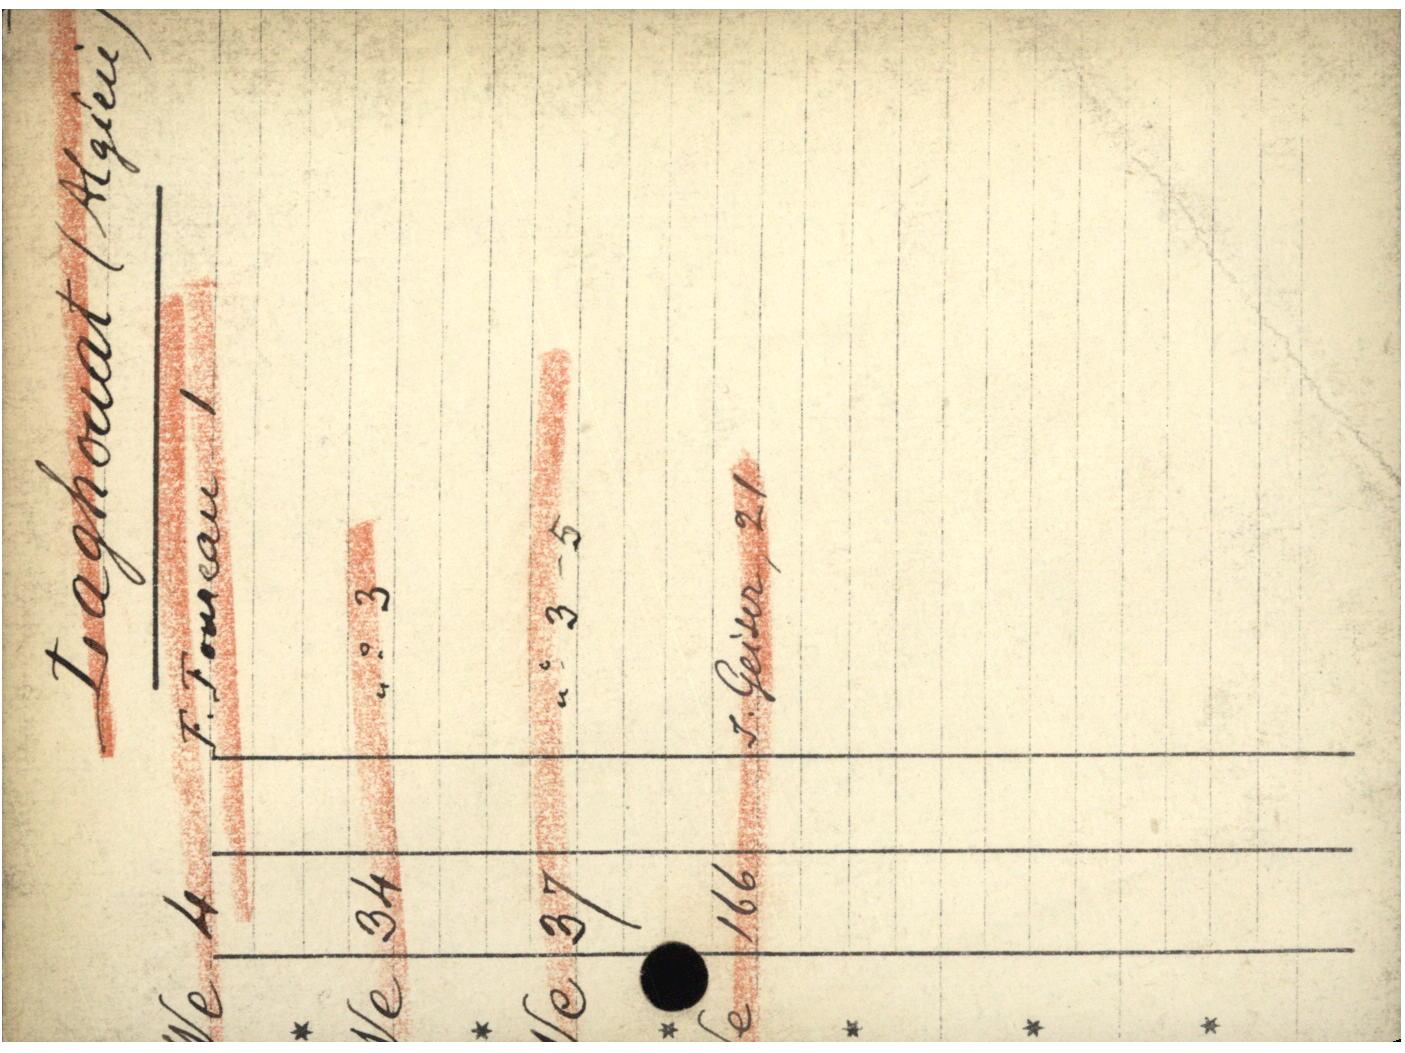 Laghouat (Algérie)
We 4 F. Foureau 1
*
We 34 n° 3
*
We 37 n° 3-5
*
We 166 J. Geiser, 21
*
*
*